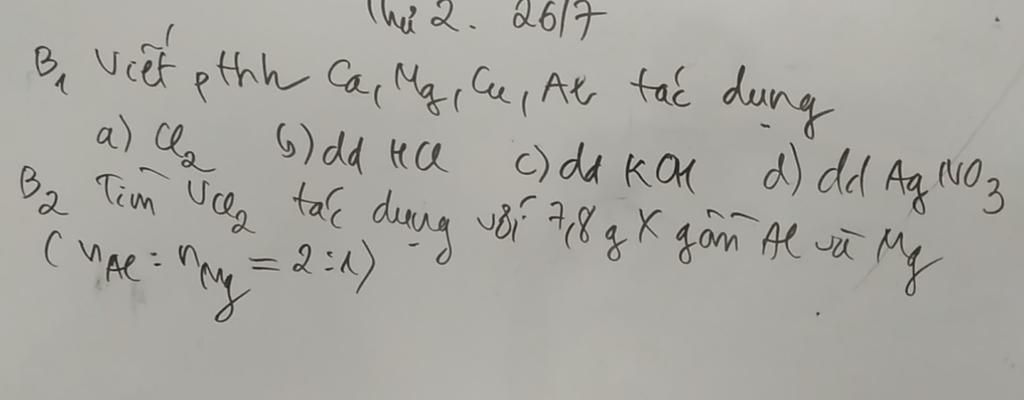 Thứ 2. 26/7
B1 Viết pthh Ca, Mg, Cu, Al tác dụng
a) Cl2 b) dd HCl c) dd KOH d) dd AgNO3
B2 Tìm VCl2 tác dụng với 7,8g X gồm Al và Mg
(nAl : nMg = 2 : 1)